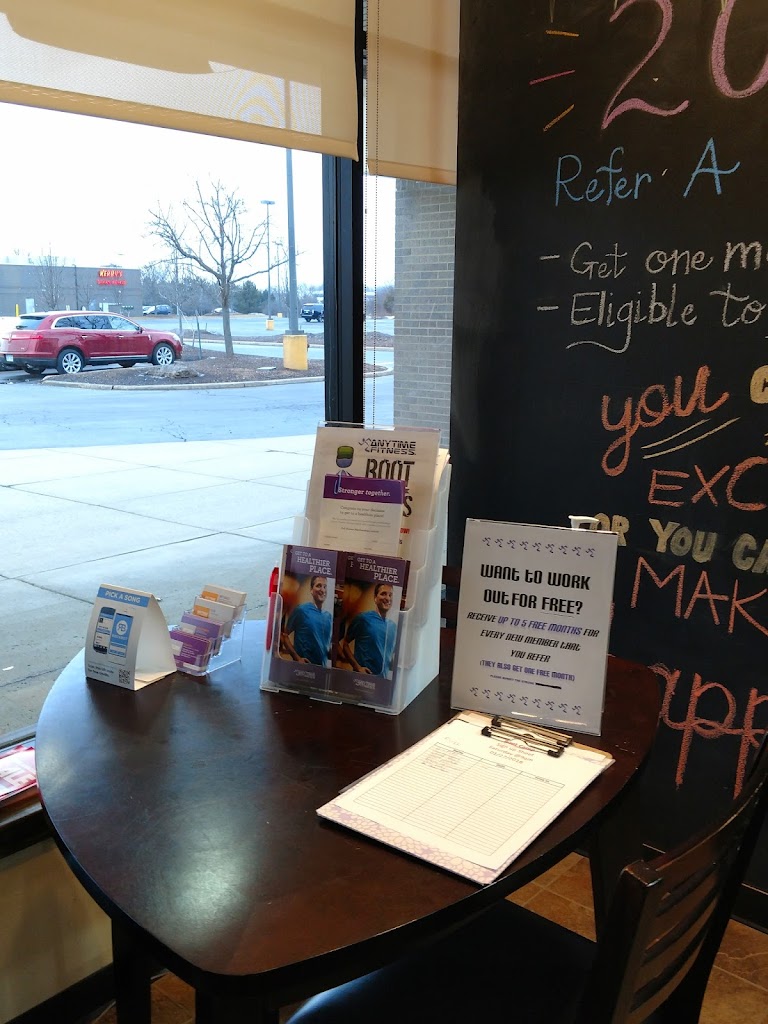 20
Refer A
- Get one m
- Eligible to
you c
EXC
FOR YOU CA
MAK
app
ANYTIME
FITNESS
BOOT
Stronger together.
GET TO A
HEALTHIER
PLACE.
GET TO A
HEALTHIER
PLACE.
PICK A SONG
WANT TO WORK
OUT FOR FREE?
RECEIVE UP TO 5 FREE MONTHS FOR
EVERY NEW MEMBER THAT
YOU REFER
(THEY ALSO GET ONE FREE MONTH)